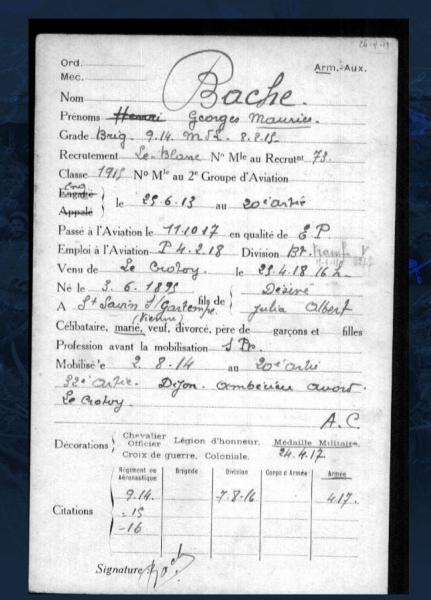 26-4-19
Ord.
Arm.-Aux.
Mec.
Nom Bache.
Prénoms Henri Georges Maurice.
Grade Brig. 9.14. MdL. 8.2.15
Recrutement Le Blanc No Mle au Recrutnt 73.
Classe 1915 No Mle au 2e Groupe d'Aviation
Engagé
Appelé
le 25.6.13 au 20e artie
Passé à l'Aviation le 11.10.17 en qualité de E P
Emploi à l'Aviation P 4.2.18 Division Bt.
Venu de Le Crotoy. le 25.4.18
Né le 3.6.1895 fils de Désiré
A St Savin S/Gartempe Julia Albert
(Vienne)
Célibataire, marié, veuf, divorcé, père de garçons et filles
Profession avant la mobilisation
Mobilisé le 2.8.14 au 20e artie
32e artie. Dijon. Ambérieu Avord.
Le Crotoy
A.C.
Décorations
Chevalier
Officier
Légion d'honneur. Médaille Militaire.
Croix de guerre. Coloniale. 24.4.17
Régiment ou Aéronautique Brigade Division Corps d'Armée Armée
Citations
9.14. 7-8-16 4.17.
-15
-16
Signature